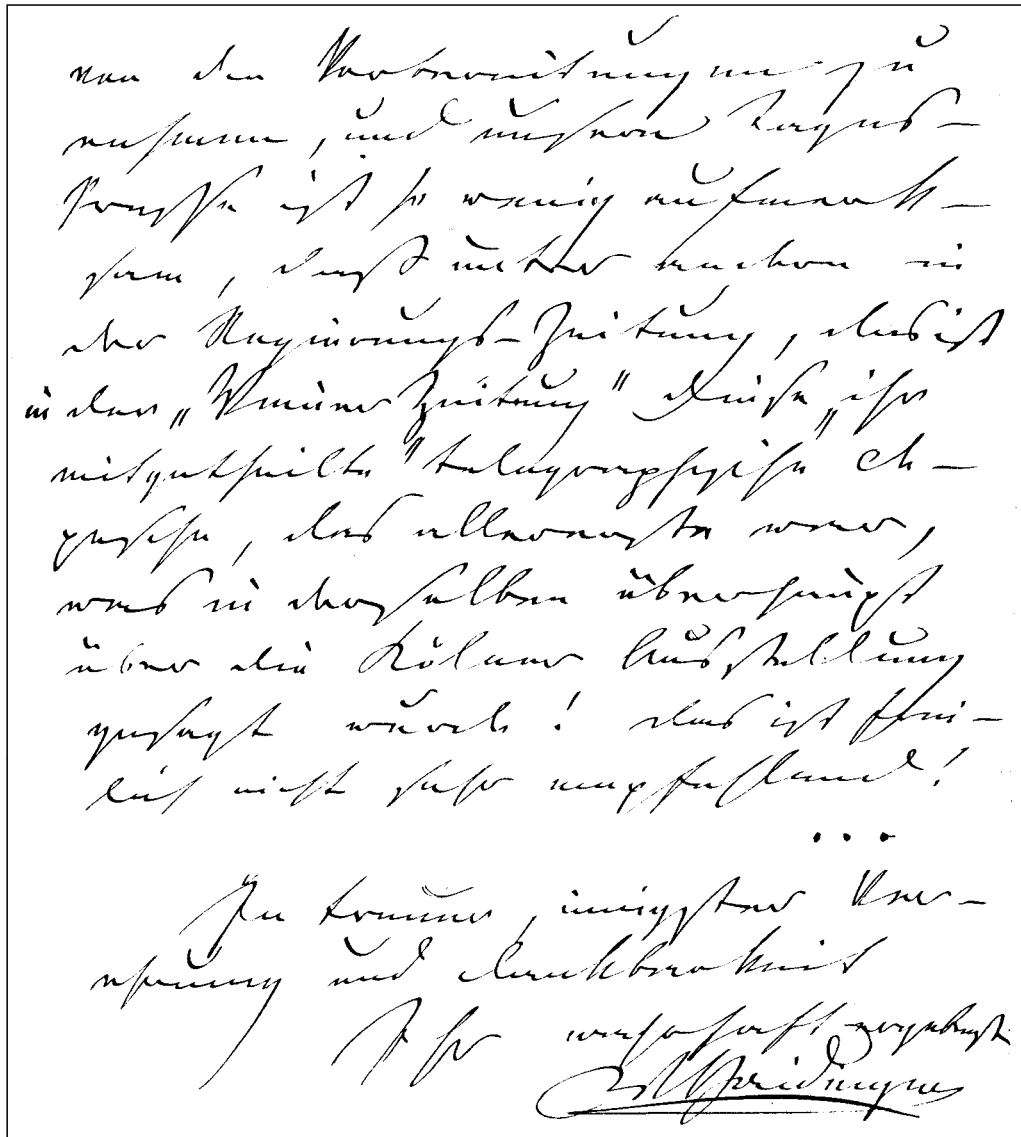 von den Vorbereitungen zu
nehmen, und unsere Tages-
presse ist so wenig aufmerk-
sam, daß unter andern in
der Regierungs-Zeitung, das ist
in der „Wiener Zeitung" diese „ihr
mitgetheilte" telegraphische De-
pesche, das allererste war,
was in derselben überhaupt
über die Kölner Ausstellung
gesagt wurde! das ist frei-
lich nicht sehr empfehlend!
...
In treuer, innigster Ver-
ehrung und Dankbarkeit
Ihr wahrhaft ergebenster
WHaidinger